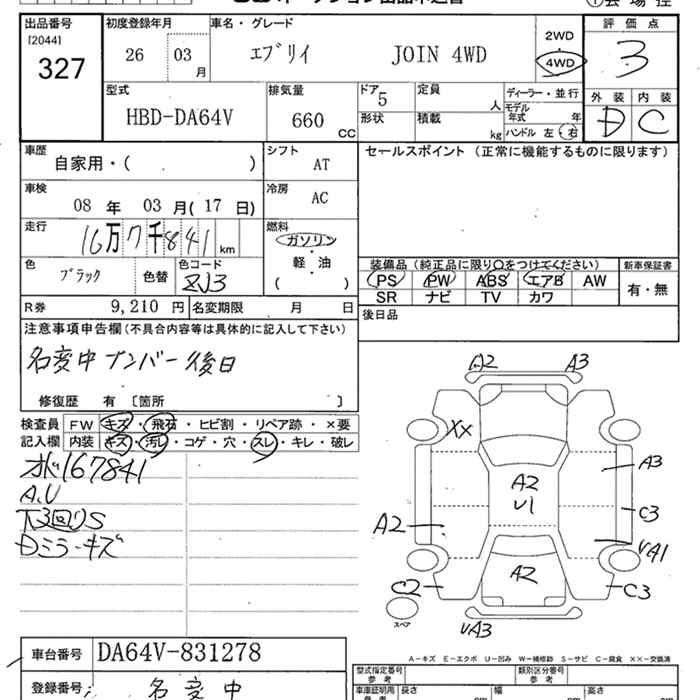 出品番号 初度登録年月 車名・グレード 評価点
[2044] 327 26 03 月 エブリイ JOIN 4WD 2WD ・ 4WD 3
型式 排気量 ドア 定員 ディーラー・並行 外装 内装
HBD-DA64V 660 CC 5 人 モデル年式 年 D C
形状 積載 kg ハンドル 左・右
車歴 シフト セールスポイント (正常に機能するものに限ります)
自家用・( ) AT
車検 冷房
08 年 03 月(17 日) AC
走行 燃料
16万7千841 km ガソリン
軽・油
( )
色 色コード 装備品 (純正品に限り○をつけてください) 新車保証書
ブラック 色替 ZJ3 PS PW ABS エアB AW 有・無
SR ナビ TV カワ
R券 9,210 円 名変期限 月 日 後日品
注意事項申告欄 (不具合内容等は具体的に記入して下さい)
名変中ナンバー後日
修復歴 有 〔箇所 〕
検査員 FW キズ・飛石・ヒビ割・リペア跡・×要
記入欄 内装 キズ・汚レ・コゲ・穴・スレ・キレ・破レ
167841
A.U
下回りS
Dミラーキズ
A2 A3
XX
A2
U1
A3
C3
A2
UA1
C2 A2 C3
スペア
UA3
A-キズ E-エクボ U-凹み W-補修跡 S-サビ C-腐食 XX-交換済
車台番号 DA64V-831278
型式指定番号 参考 類別区分番号 参考
登録番号 名変中
車庫証明用 長さ 幅 高さ